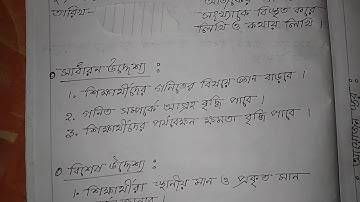 তারিখ-
সংখ্যাকে বিস্তৃত করে
লিখি ও কথায় লিখি ।
০ সাধারন উদ্দেশ্য :
১. শিক্ষার্থীদের গনিতের বিষয়ে জ্ঞান বাড়বে ।
২. গনিত সম্পর্কে আগ্রহ বৃদ্ধি পাবে ।
৩. শিক্ষার্থীদের পর্যবেক্ষন ক্ষমতা বৃদ্ধি পাবে ।
০ বিশেষ উদ্দেশ্য :
১. শিক্ষার্থীরা স্থানীয় মান ও প্রকৃত মান